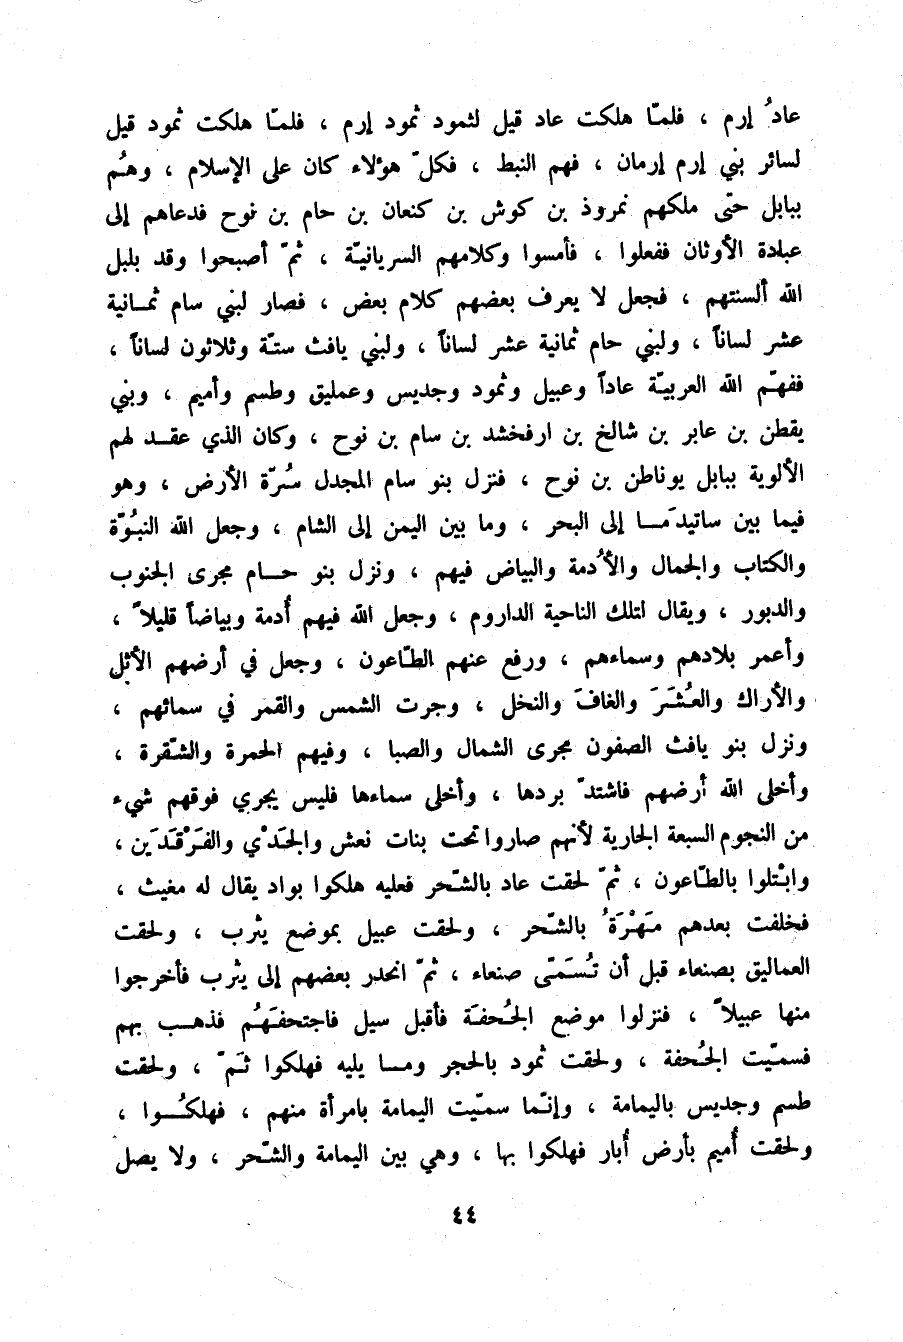 عادُ إرم ، فلمّا هلكت عاد قيل لثمود ثمود إرم ، فلمّا هلكت ثمود قيل
لسائر بني إرم إرمان ، فهم النبط ، فكلّ هؤلاء كان على الإسلام ، وهُم
ببابل حتّى ملكهم نمروذ بن كوش بن كنعان بن حام بن نوح فدعاهم إلى
عبادة الأوثان ففعلوا ، فأمسوا وكلامهم السريانيّة ، ثمّ أصبحوا وقد بلبل
الله ألسنتهم ، فجعل لا يعرف بعضهم كلام بعض ، فصار لبني سام ثمـانية
عشر لساناً ، ولبني حام ثمانية عشر لساناً ، ولبني يافث ستّة وثلاثون لساناً ،
ففهّم الله العربيّة عاداً وعبيل وثمود وجديس وعمليق وطسم وأميم ، وبني
يقطن بن عابر بن شالخ بن ارفخشد بن سام بن نوح ، وكان الذي عقـد لهم
الألوية ببابل يوناطن بن نوح ، فنزل بنو سام المجدل سُرّة الأرض ، وهو
فيما بين ساتيدَمـا إلى البحر ، وما بين اليمن إلى الشام ، وجعل الله النبُوّة
والكتاب والجمال والأُدمة والبياض فيهم ، ونزل بنو حـام مجرى الجنوب
والدبور ، ويقال لتلك الناحية الداروم ، وجعل الله فيهم أُدمة وبياضاً قليلاً ،
وأعمر بلادهم وسماءهم ، ورفع عنهم الطّاعون ، وجعل في أرضهم الأثل
والأراك والعُشَرَ والغافَ والنخل ، وجرت الشمس والقمر في سمائهم ،
ونزل بنو يافث الصفون مجرى الشمال والصبا ، وفيهم الحمرة والشّقرة ،
وأخلى الله أرضهم فاشتدّ بردها ، وأخلى سماءها فليس يجري فوقهم شيء
من النجوم السبعة الجارية لأنهم صاروا تحت بنات نعش والجَدْي والفَرْقَدَين ،
وابْتلوا بالطّاعون ، ثمّ لحقت عاد بالشّحر فعليه هلكوا بواد يقال له مغيث ،
فخلفت بعدهم مَهْرَةُ بالشّحر ، ولحقت عبيل بموضع يثرب ، ولحقت
العماليق بصنعاء قبل أن تُسَمّى صنعاء ، ثمّ انحدر بعضهم إلى يثرب فأخرجوا
منها عبيلاً ، فنزلوا موضع الجُحفة فأقبل سيل فاجتحفَهُم فذهـب بهم
فسمّيت الجُحفة ، ولحقت ثمود بالحجر ومـا يليه فهلكوا ثَمّ ، ولحقت
طسم وجديس باليمامة ، وإنّما سمّيت اليمامة بامرأة منهم ، فهلكُـوا ،
ولحقت أُميم بأرض أُبار فهلكوا بها ، وهي بين اليمامة والشّحر ، ولا يصل
٤٤